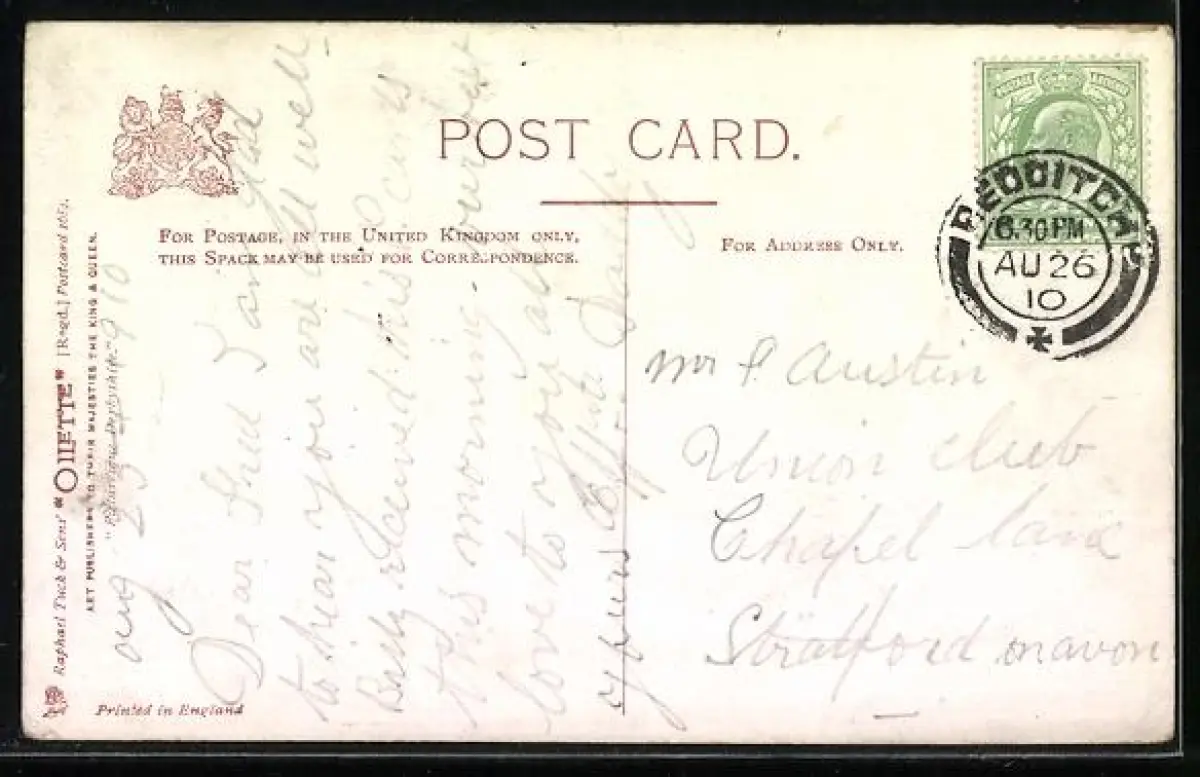 POST CARD.
FOR POSTAGE, IN THE UNITED KINGDOM ONLY,
THIS SPACE MAY BE USED FOR CORRESPONDENCE.
FOR ADDRESS ONLY.
POSTAGE
REDDITCH
6.30 PM
AU 26
10
Mr F. Austin
Union Club
Chapel Lane
Stratford on avon
Raphael Tuck & Sons' "OILETTE" [Regd.] Postcard
ART PUBLISHERS TO THEIR MAJESTIES THE KING & QUEEN.
"Picturesque Derbyshire"
Printed in England
aug 10
Dear Fred I am glad
to hear you are all well
received this
this morning
love to you all
yours